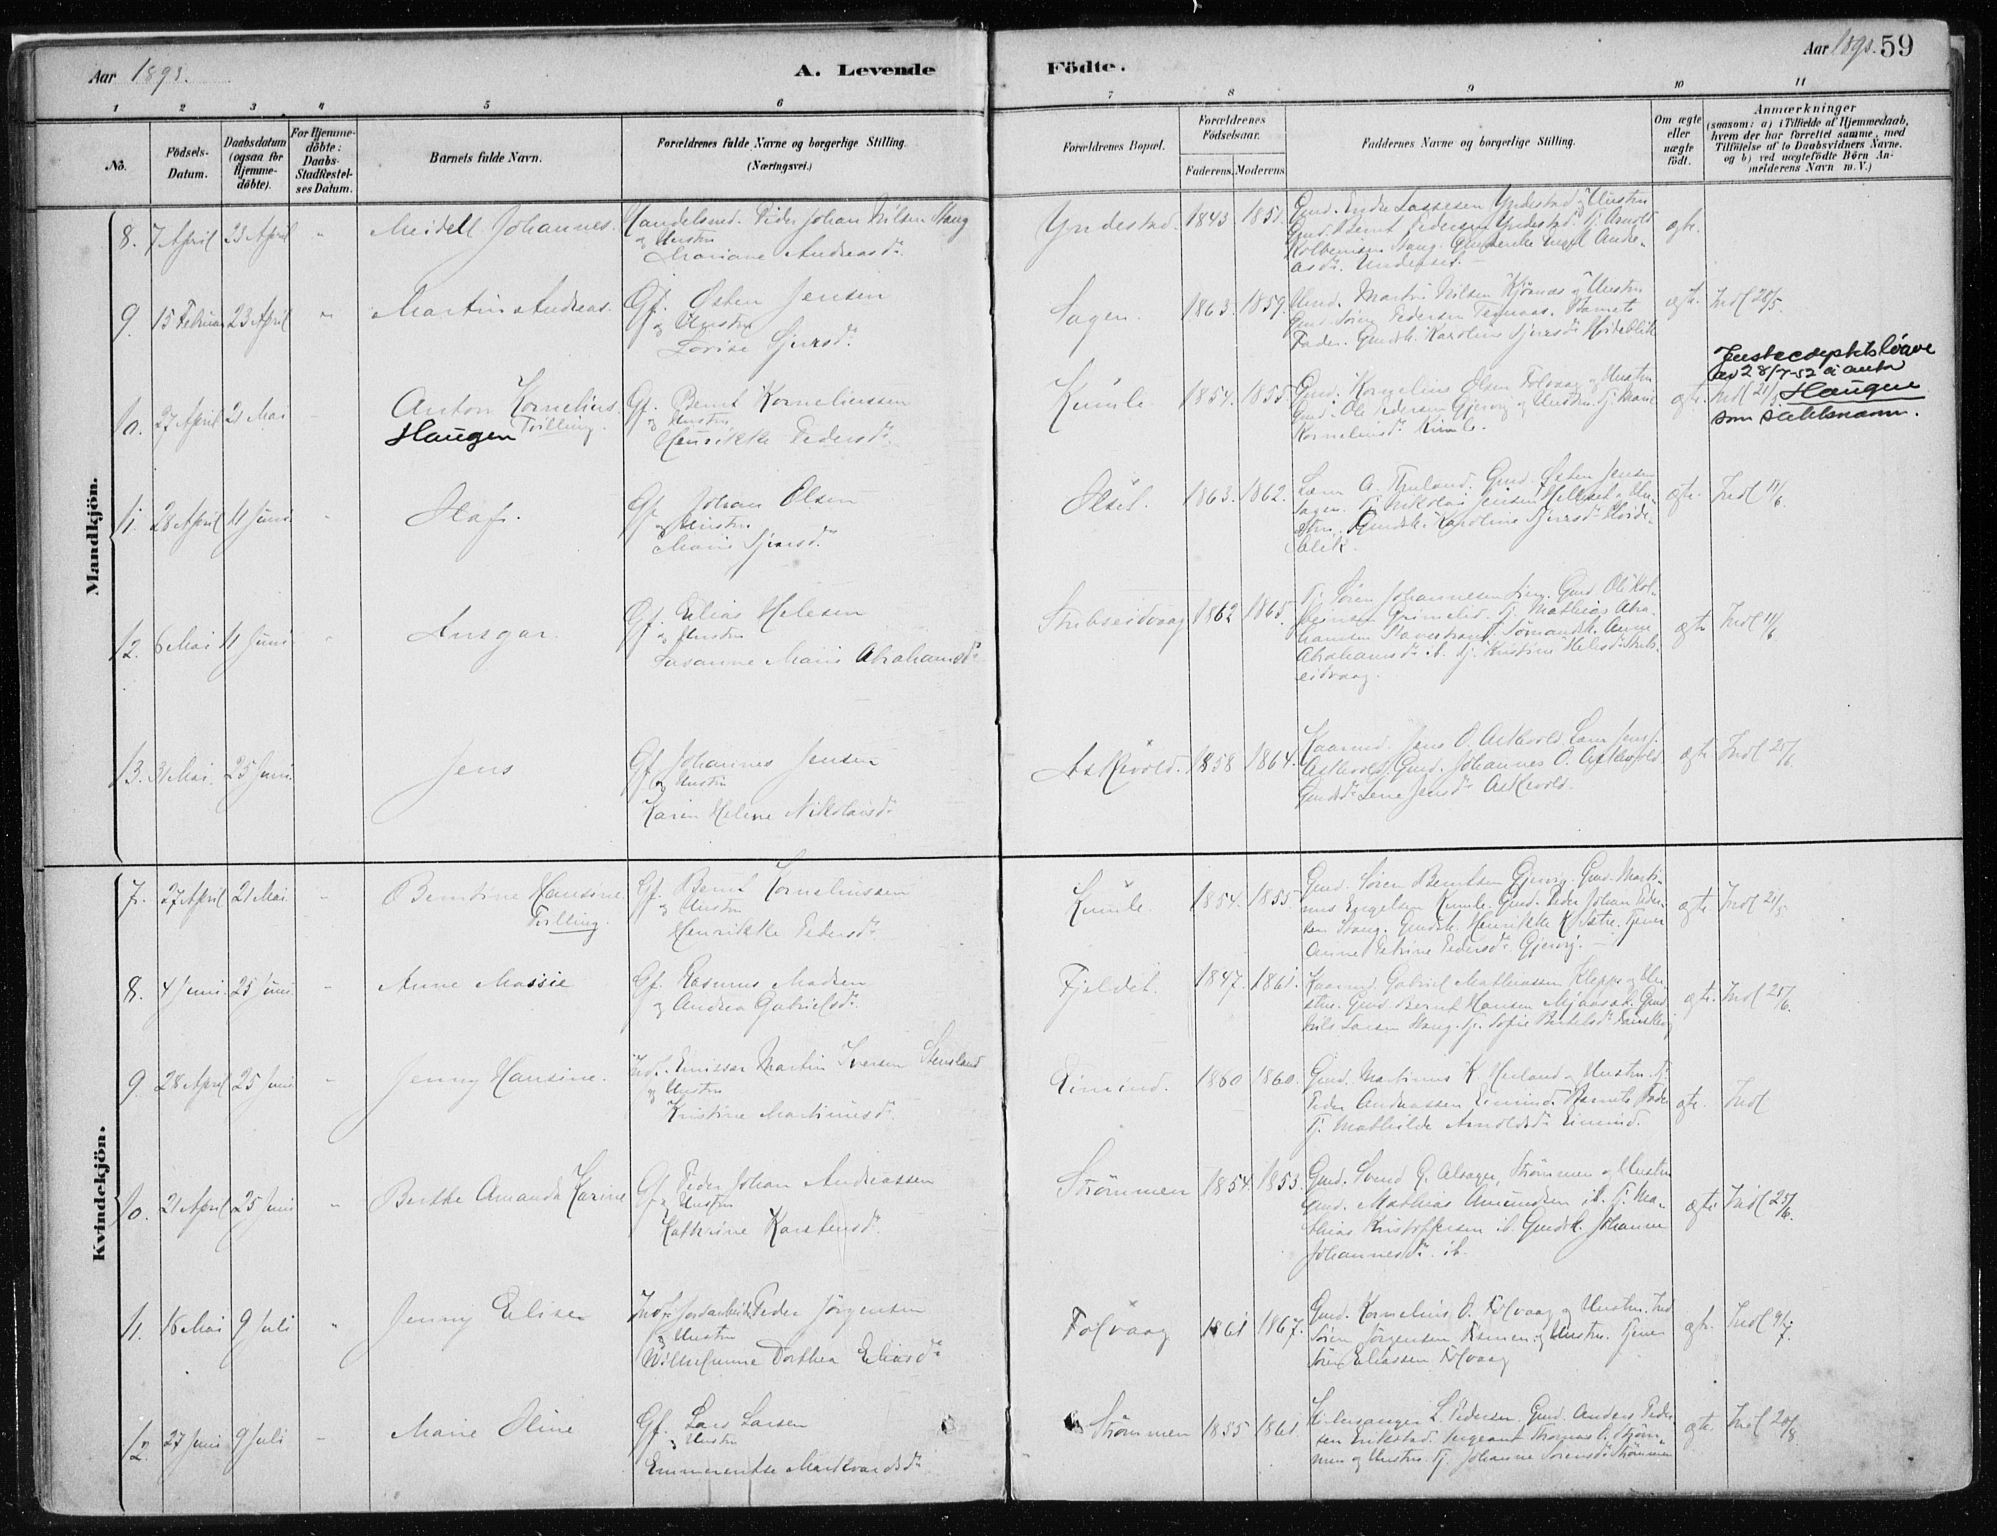 Aar 1893.
A. Levende
Födte.
Aar 1893. 59
1 2 3 4 5 6 7 8 9 10 11
No.
Födsels-
Datum.
Daabsdatum
(ogsaa for
Hjemme-
döbte).
For Hjemme-
döbte:
Daabs-
Stadfæstel-
ses Datum.
Barnets fulde Navn.
Forældrenes fulde Navne og borgerlige Stilling.
(Næringsvei.)
Forældrenes Bopæl.
Forældrenes
Födselsaar.
Faderens. Moderens.
Faddernes Navne og borgerlige Stilling.
Om ægte
eller
uægte
födt.
Anmærkninger
(saasom: a) i Tilfælde af Hjemmedaab,
hvem der har forrettet samme, med
Tilföielse af to Daabsvidners Navne.
og b) ved uægtefödte Börn An-
melderens Navn m. V.)
Mandkjön.
8. 7 April 23 April " Meidell Johannes. Handelsmd. Peder Johan Nilsen Haug
og Hustru
Mariane Andreasdr.
Yndestad. 1843 1851.
Gmd. Endre Lassesen Yndestad og Hustru
Gmd. Bernt Pedersen Yndestad. Tj. Arnold
Kolbeinsen Haug.
ægte.
9. 15 Februar 23 April " Martin Andreas. Gf. Østen Jensen
og Hustru
Lovise Sjursdr.
Sagen. 1863. 1859.
Gmd. Martin Nilsen Kjørnæs og Hustru
Gmd. Søren Pedersen Barnets
Fader. Gmdsk. Karoline Sjursdr Høideblik
ægte. Indf 20/5.
10. 27 April 21 Mai Anton Kornelius.
Haugen Tvilling.
Gf. Bernt Korneliussen
og Hustru
Henrikke Pedersdr.
Kumle 1854. 1855.
Gmd. Kornelius Olsen Folvaag og Hustru
Gmd. Ole Pedersen Gjervig og Hustru. Tj. Marie
Korneliusdr Kumle.
ægte. Indf 21/5
Justisdeptets løyve
av 28/7-52 å anta
Haugen
som slektsnamn.
11. 28 April 11 Juni " Olaf. Gf. Johan Olsen
og Hustru
Marie Sjursdr.
Olset. 1863. 1862.
Gmd. Østen Jensen
Sagen. Tj. Nikolai Jensen Helleset og Hu-
stru. Gmdsk. Karoline Sjursdr Høide-
blik.
ægte. Indf 11/6.
12. 6 Mai 11 Juni " Ansgar. Gf. Elias Helesen
og Hustru
Susanne Marie Abrahamsdr
Stubseidvaag 1862 1865.
Tj. Søren Johannesen Gmd. Ole Kol-
beinsen Grimelid. Tj. Mathias Abra-
hamsen Stavestrand. Sømandsk. Anne
Abrahamsdr ib. Tj. Kristine Helesdr Stub-
seidvaag.
ægte Indf 11/6
13. 31 Mai. 25 Juni. Jens Gf. Johannes Jensen
og Hustru
Karen Helene Nikolaisdr
Askevold. 1858 1864.
Kaarmd. Jens O. Askevold. Jens J.
Askevold. Gmd. Johannes O. Askevold
Gmdsdr Lene Jensdr Askevold.
ægte Indf 25/6.
Kvindekjön.
7. 27 April 21 Mai. " Berntine Hansine
Tvilling.
Gf. Bernt Korneliussen
og Hustru
Henrikke Pedersdr
Kumle. 1854. 1855
Gmd. Søren Berntsen Gjervig. Gmd. Marti-
nus Engelsen Kumle. Gmd. Peder Johan Peder-
sen Haug. Gmdsk. Henrikke K. Sætre. Tjener
Anne Petrine Pedersdr Gjervig.
ægte Indf 21/5
8. 4 Juni. 25 Juni. " Anne Massie Gf. Rasmus Madsen
og Andrea Gabrielsdr.
Fjeldet. 1847. 1861.
Kaarmd. Gabriel Mathiassen Kleppe og Hu-
stru. Gmd. Bernt Hansen Mjaasæt. Gmd.
Nils Larsen Haug. Tj. Sofie
ægte. Indf 25/6.
9. 28 April 25 Juni " Jenny Hansine. Indf. Emissær Martin Iversen Stensland
og Hustru
Kristine Martinusdr.
Eimind. 1860 1860.
Gmd. Martinus K. Herland og Hustru. Tj.
Peder Andreassen Eimind. Barnets Fader
Tj. Mathilde Arnoldsdr Eimind.
ægte. Indf
10. 21 April 25 Juni " Berthe Amanda Karine Gf. Peder Johan Andreassen
og Hustru
Kathrine Karstensdr.
Strømmen 1854. 1853.
Gmd. Svend G. Alsager, Strømmen og Hustru
Gmd. Mathias Amundsen ib. Tj. Ma-
thias Kristoffersen ib. Gmdsk. Johanne
Johannesdr. ib.
ægte. Indf 25/6.
11. 18 Mai 9 Juli " Jenny Elise Indf. Jordarbeid. Peder Jörgensen
og Hustru
Wilhelmine Dorthea Eliasdr
Folvaag 1861 1867.
Gmd. Kornelius O. Folvaag og Hustru. Ind.
Søren Jørgensen og Hustru. Tjener
Søren Eliassen Folvaag
ægte. Indf 9/7.
12. 27 Juni 9 Juli " Marie Oline Gf. Lars Larsen
og Hustru
Emmerentse Markvardsdr
Strømmen 1855 1861.
Kirkesanger L. Pedersen. Gmd. Anders Peder-
sen Erikstad. Sergeant Thomas L. Strøm-
men og Hustru. Tj. Johanne Sørensdr Strømmen
ægte. Indf 20/8.